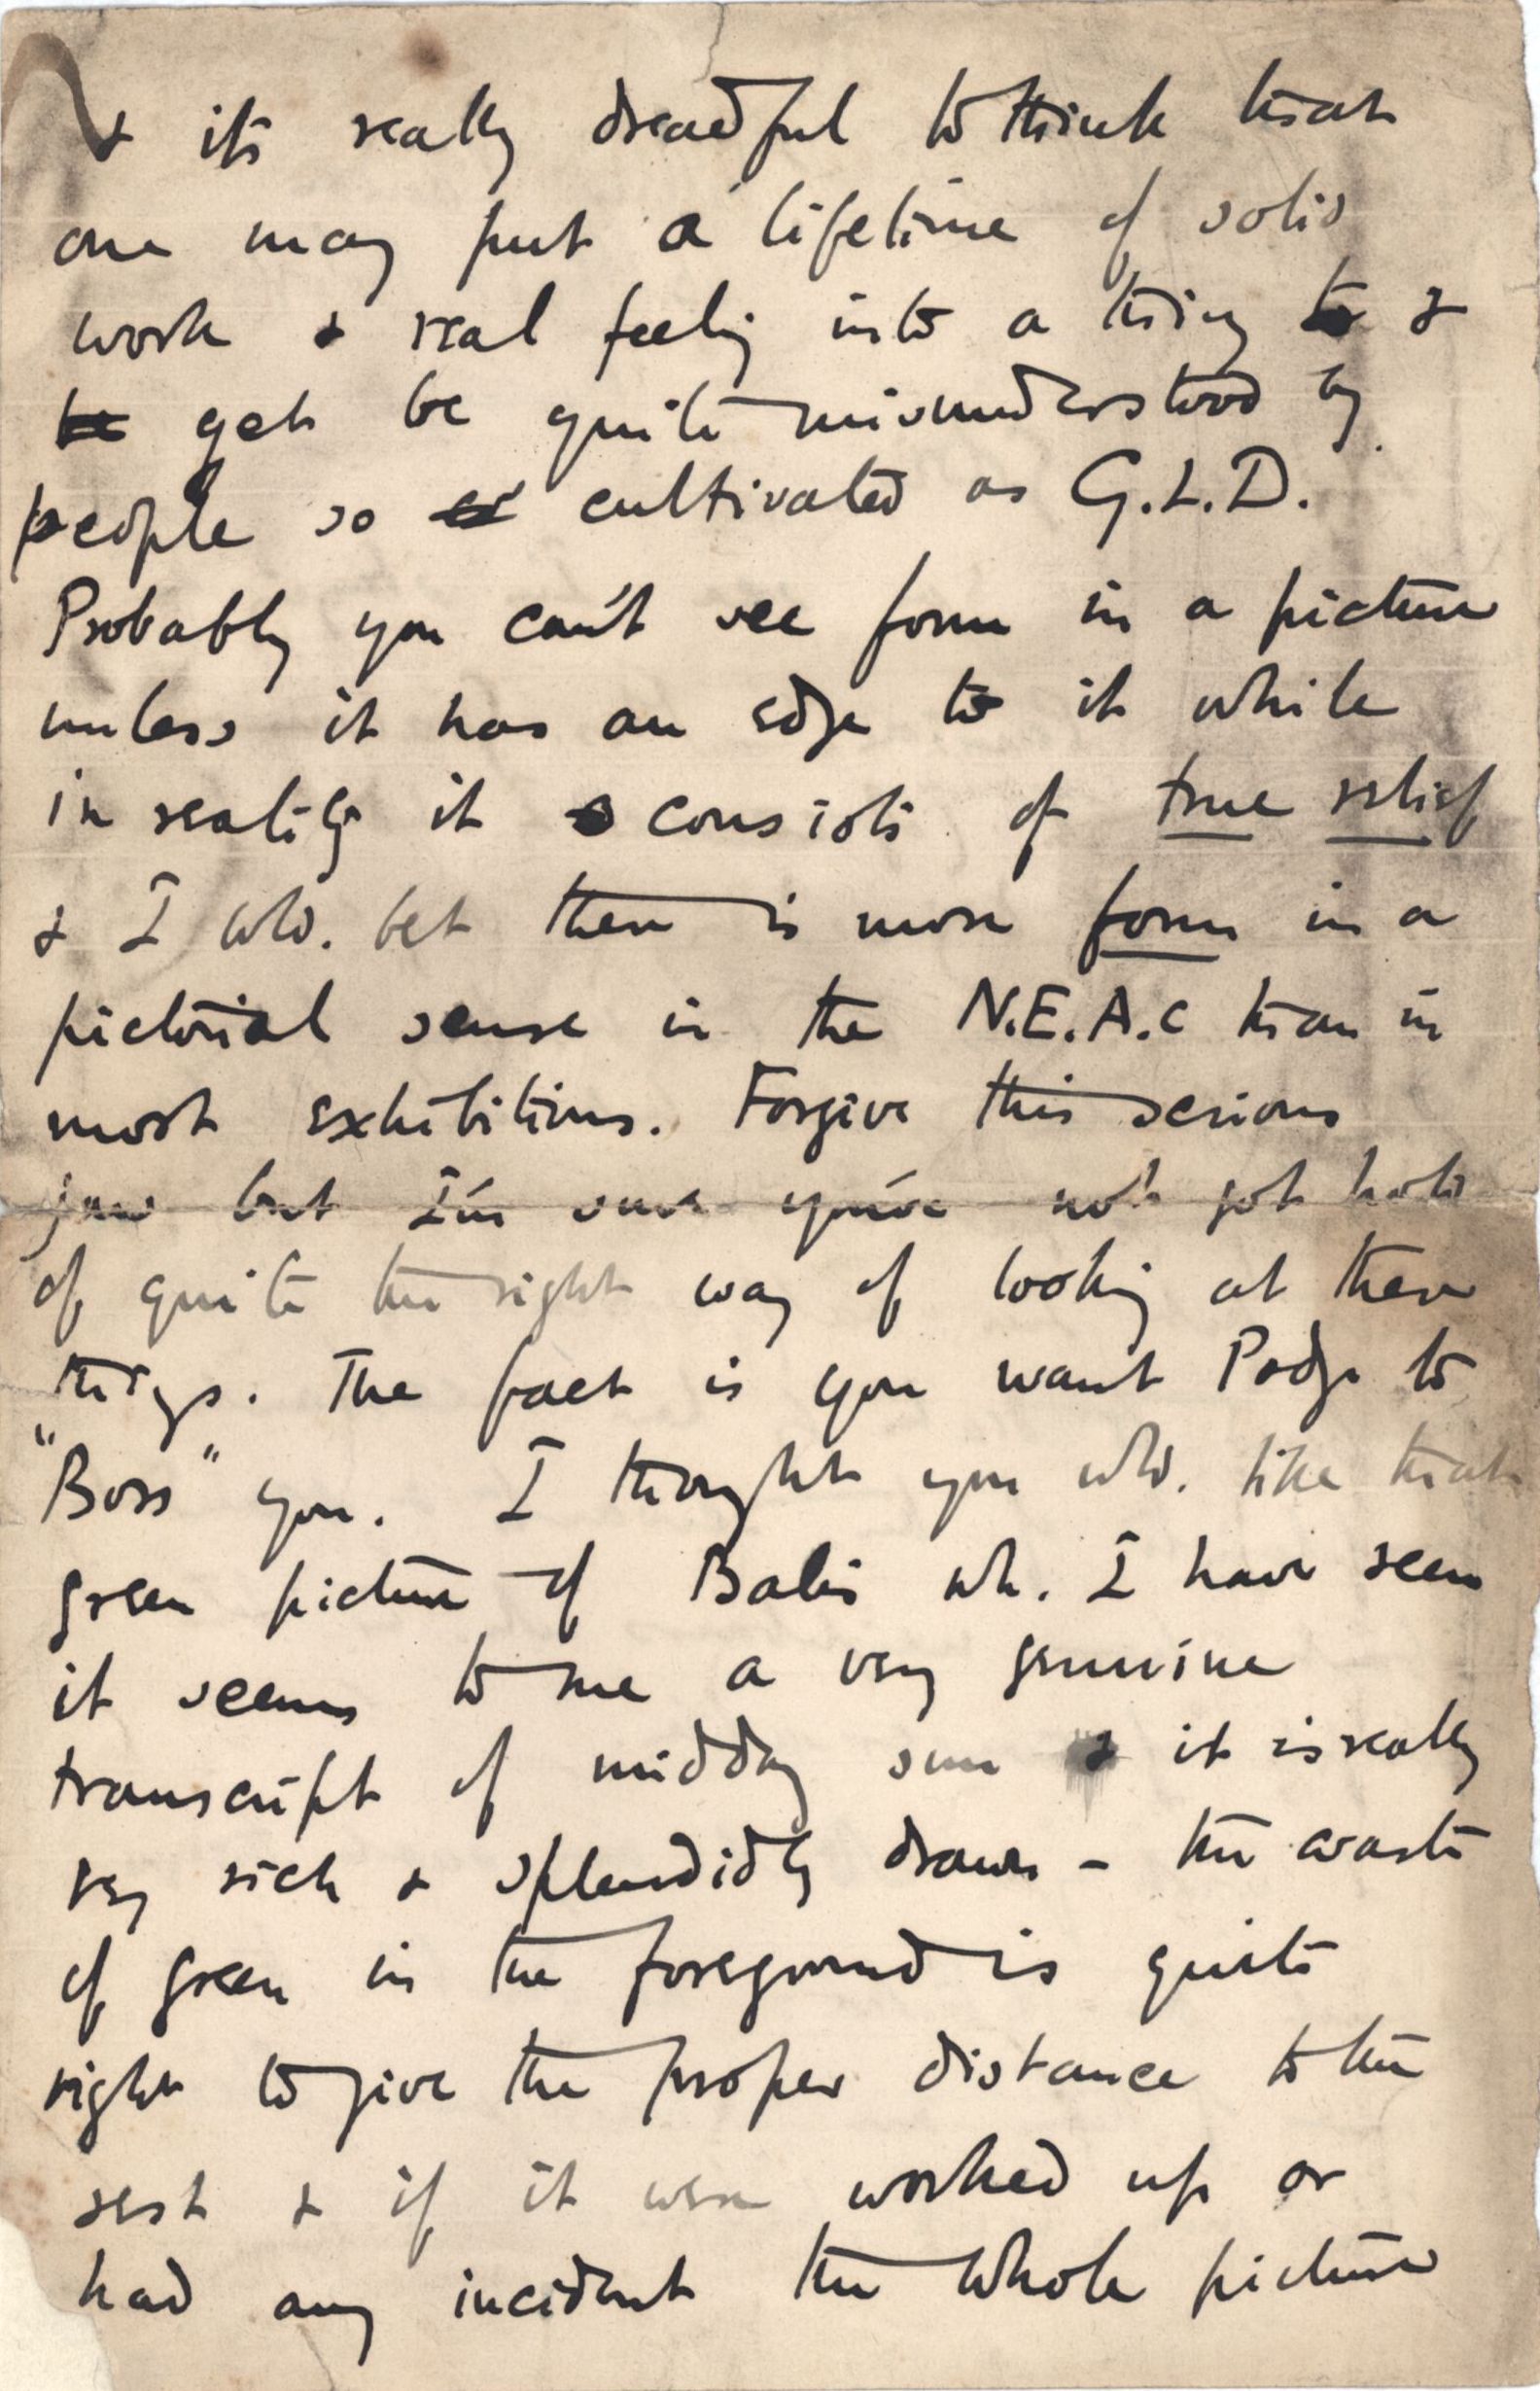 & it's really dreadful to think that
one may put a lifetime of solid
work & real feeling into a thing to &
be yet be quite misunderstood by
people so cultivated as G.L.D.
Probably you can't see form in a picture
unless it has an edge to it while
in reality it consists of true relief
& I wld. bet there is more form in a
pictorial sense in the N.E.A.C than in
most exhibitions. Forgive this serious
jaw but I'm sure you've not got hold
of quite the right way of looking at these
things. The fact is you want Podge to
"Boss" you. I thought you wld. like that
green picture of Bates wh. I have seen
it seems to me a very genuine
transcript of midday sun & it is really
very rich & splendidly drawn - the waste
of green in the foreground is quite
right to give the proper distance to the
rest & if it were worked up or
had any incident the whole picture